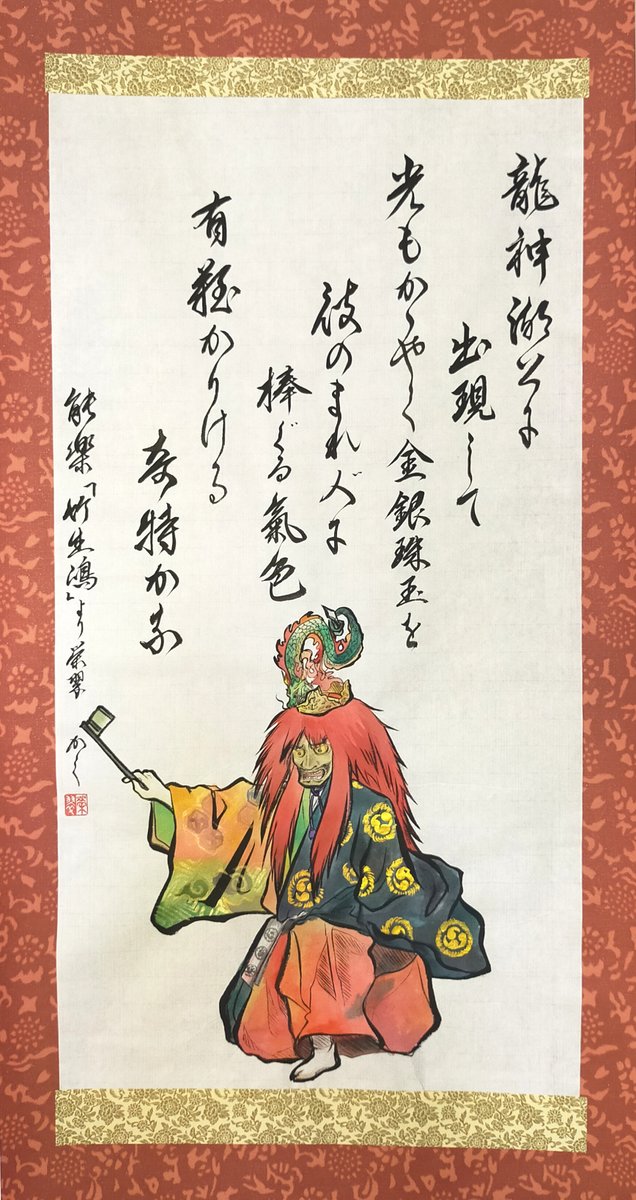 龍神湖上に
出現して
光もかゝやく金銀珠玉を
彼のまれ人に
捧ぐる氣色
有難かりける
奇特かな
能樂「竹生嶋」より 栄翠 かく